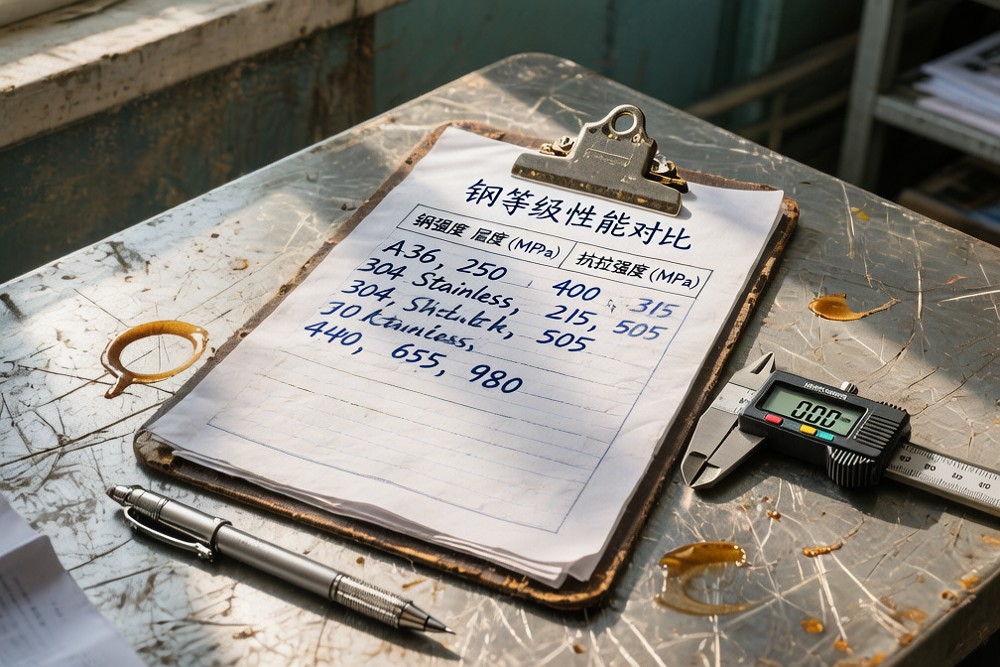 钢等级性能对比
钢强度 屈度 (MPa) 抗拉强度 (MPa)
A36, 250 400 315
304 Stainless, 215, 505
304, 505
30
440, 655, 980
000